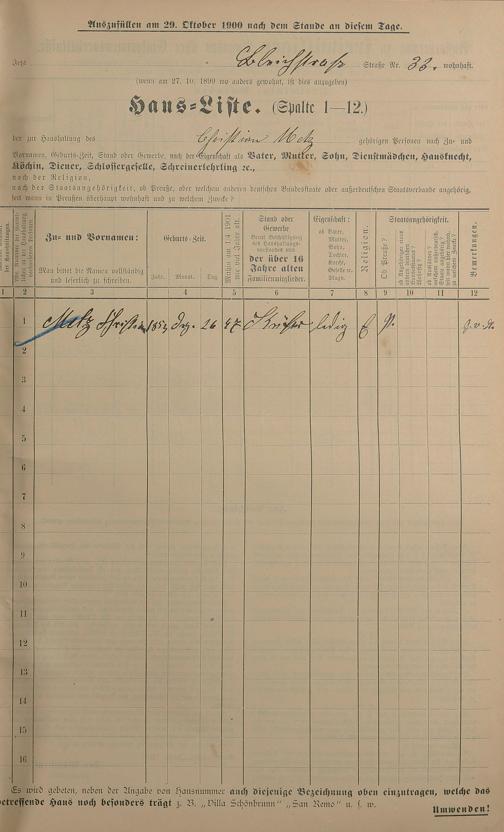 Auszufüllen am 29. Oktober 1900 nach dem Stande an diesem Tage.
Jetzt Bleichstraße Straße Nr. 33. wohnhaft.
(wenn am 27. 10. 1899 wo anders gewohnt, ist dies anzugeben)
Haus=Liste. (Spalte 1—12.)
der zur Haushaltung des Christian Metz gehörigen Personen nach Zu= und
Vornamen, Geburts=Zeit, Stand oder Gewerbe, nach der Eigenschaft als Vater, Mutter, Sohn, Dienstmädchen, Hausknecht,
Köchin, Diener, Schlossergeselle, Schreinerlehrling ꝛc.,
nach der Religion,
nach der Staatsangehörigkeit, ob Preuße, oder welchem anderen deutschen Bundesstaate oder außerdeutschen Staatsverbande angehörig,
seit wann in Preußen überhaupt wohnhaft und zu welchem Zweck?
Zu= und Vornamen:
Man bittet die Namen vollständig
und leserlich zu schreiben.
Geburts=Zeit.
Jahr. Monat. Tag.
Stand oder
Gewerbe
der über 16
Jahre alten
Familienmitglieder.
Eigenschaft:
ob Vater,
Mutter,
Sohn,
Tochter,
Knecht,
Geselle u.
Magd.
Religion.
Staatsangehörigkeit.
Ob Preuße?
Bemerkungen.
1 2 3 4 5 6 7 8 9 10 11 12
1 Metz Christian Dez. 26 47 ledig E P.
2
3
4
5
6
7
8
9
10
11
12
13
14
15
16
Es wird gebeten, neben der Angabe von Hausnummer auch diejenige Bezeichnung oben einzutragen, welche das
betreffende Haus noch besonders trägt z. B. „Villa Schönbrunn" „San Remo" u. s. w.
Umwenden!